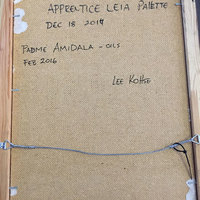 APPRENTICE LEIA PALETTE
DEC 18 2014
PADME AMIDALA - OILS
FEB 2016
LEE KOHSE